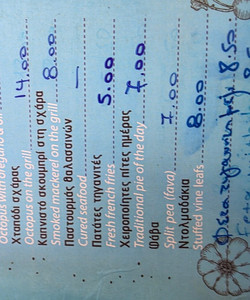 Octopus with oregano & oil
Χταπόδι σχάρας
Octopus on the grill 14.00
Καπνιστό σκουμπρί στη σχάρα
Smoked mackerel on the grill 8.00
Παστουρμάς θαλασσινών
Cured seafood —
Πατάτες τηγανιτές
Fresh french fries 5.00
Χειροποίητες πίτες ημέρας
Traditional pie of the day 7.00
Φάβα
Split pea (fava) 7.00
Ντολμαδάκια
Stuffed vine leafs 8.00
8.50